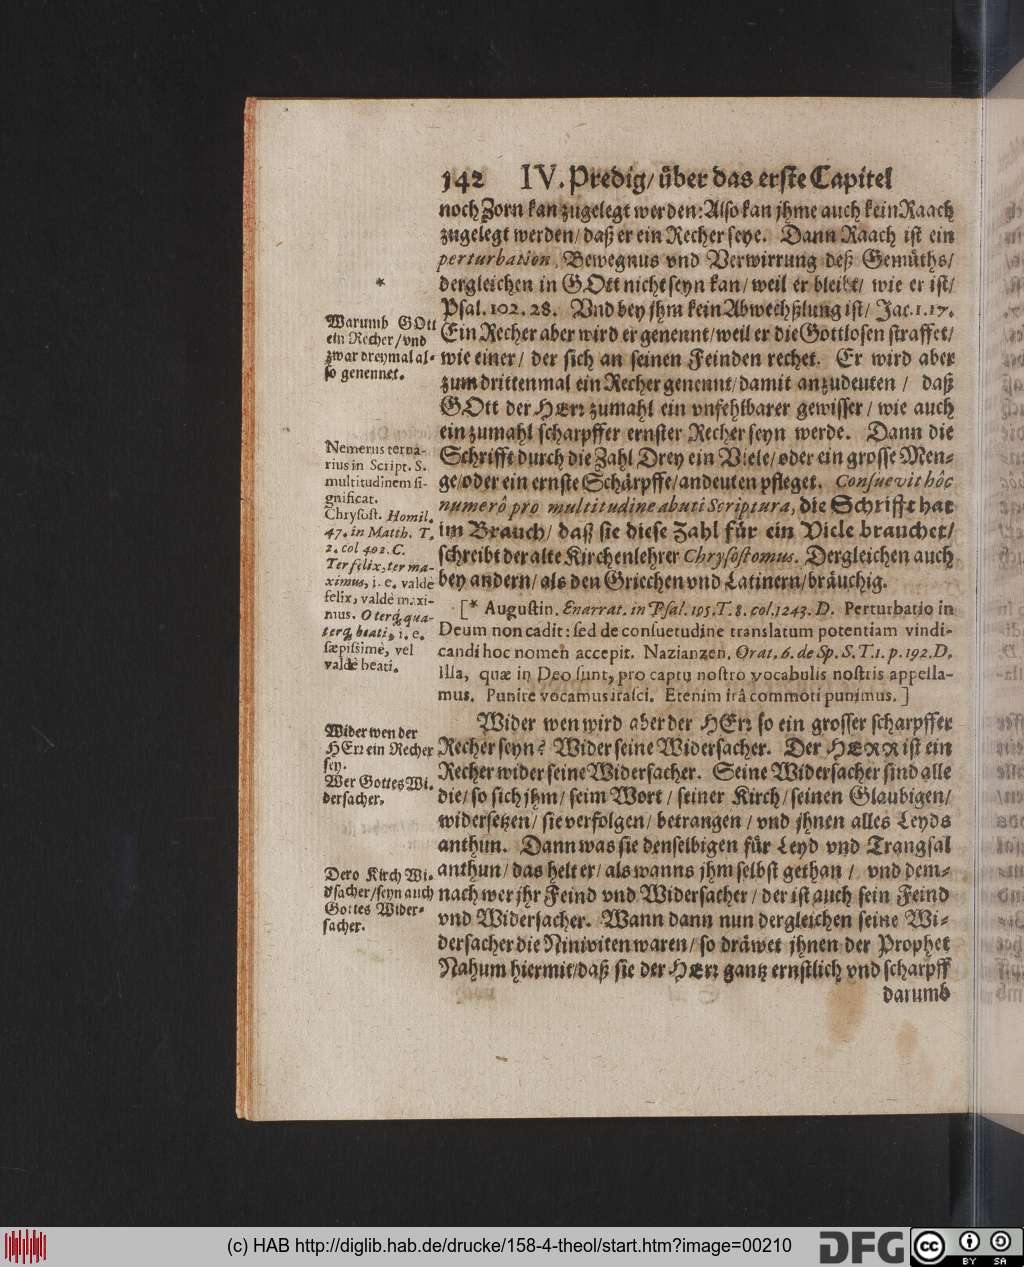 142 IV. Predig/ über das erste Capitel
noch Zorn kan zugelegt werden: Also kan jhme auch kein Raach
zugelegt werden/ daß er ein Recher seye. Dann Raach ist ein
perturbation, Bewegnus vnd Verwirrung deß Gemüths/
dergleichen in GOtt nicht seyn kan/ weil er bleibt/ wie er ist/
Psal. 102. 28. Vnd bey jhm kein Abwechßlung ist/ Jac. 1. 17.
Ein Recher aber wird er genennt/ weil er die Gottlosen straffet/
wie einer/ der sich an seinen Feinden rechet. Er wird aber
zum drittenmal ein Recher genennt/ damit anzudeuten / daß
GOtt der HErr zumahl ein vnfehlbarer gewisser / wie auch
ein zumahl scharpffer ernster Recher seyn werde. Dann die
Schrifft durch die Zahl Drey ein Viele/ oder ein grosse Men-
ge/ oder ein ernste Schärpffe/ andeuten pfleget. Consuevit hôc
numerô pro multitudine abuti Scriptura, die Schrifft hat
im Brauch/ daß sie diese Zahl für ein Viele brauchet/
schreibt der alte Kirchenlehrer Chrysostomus. Dergleichen auch
bey andern/ als den Griechen vnd Latinern/ bräuchig.
[* Augustin. Enarrat. in Psal. 105. T. 8. col. 1243. D. Perturbatio in
Deum non cadit: sed de consuetudine translatum potentiam vindi-
candi hoc nomen accepit. Nazianzen. Orat. 6. de Sp. S. T. 1. p. 192. D.
Illa, quæ in Deo sunt, pro captu nostro vocabulis nostris appella-
mus. Punire vocamus irasci. Etenim irâ commoti punimus.]
Wider wen wird aber der HErr so ein grosser scharpffer
Recher seyn? Wider seine Widersacher. Der HERR ist ein
Recher wider seine Widersacher. Seine Widersacher sind alle
die/ so sich jhm/ seim Wort / seiner Kirch/ seinen Glaubigen/
widersetzen/ sie verfolgen/ betrangen / vnd jhnen alles Leyds
anthun. Dann was sie denselbigen für Leyd vnd Trangsal
anthun/ das helt er/ als wanns jhm selbst gethan / vnd dem-
nach wer jhr Feind vnd Widersacher / der ist auch sein Feind
vnd Widersacher. Wann dann nun dergleichen seine Wi-
dersacher die Niniviten waren/ so dräwet jhnen der Prophet
Nahum hiermit/ daß sie der HErr gantz ernstlich vnd scharpff
darumb
*
Warumb GOtt
ein Recher/ vnd
zwar dreymal al-
so genennet.
Nemerus terna-
rius in Script. S.
multitudinem si-
gnificat.
Chrysost. Homil.
47. in Matth. T.
2. col 402. C.
Ter felix, ter ma-
ximus, i. e. valdè
felix, valdè maxi-
mus. O terq́, qua-
terq́, beati, i. e.
sæpissimè, vel
valdè beati.
Wider wen der
HErr ein Recher
sey.
Wer Gottes Wi-
dersacher.
Dero Kirch Wi-
dsacher/ seyn auch
Gottes Wider-
sacher.
(c) HAB http://diglib.hab.de/drucke/158-4-theol/start.htm?image=00210
DFG
cc BY SA